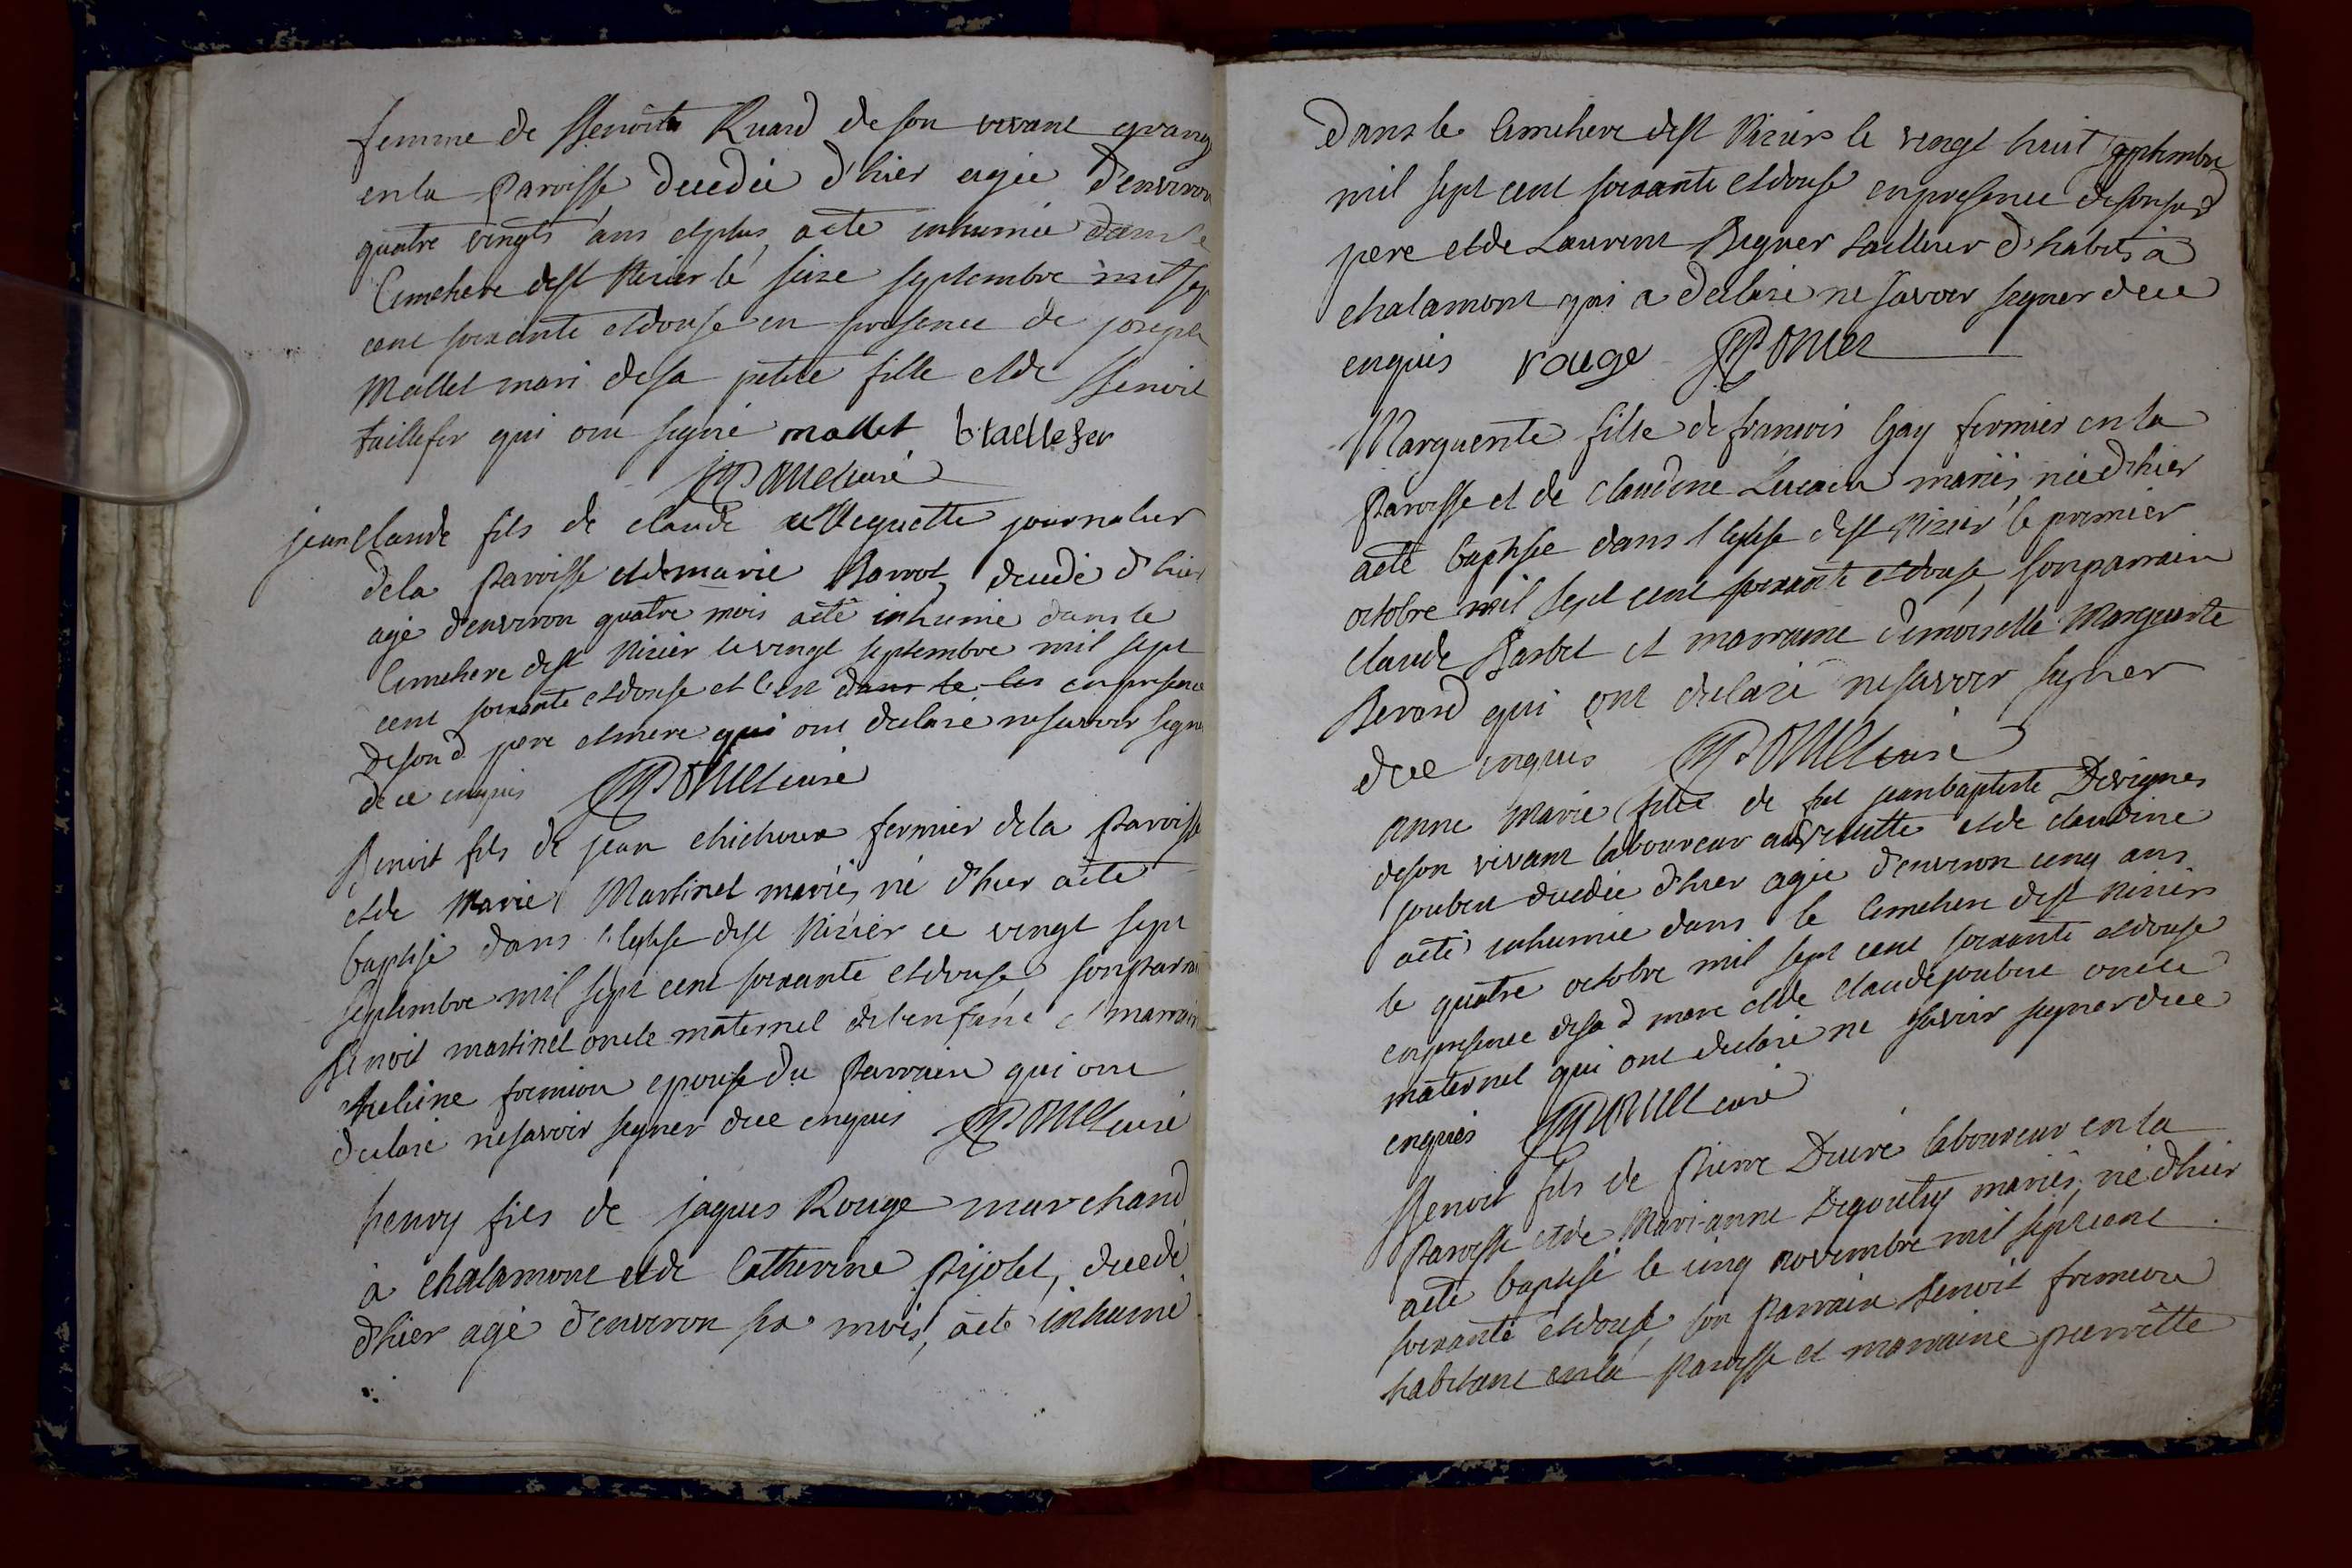 femme de Benoits Ruard de son vivant grang
en la Paroisse decedée d'hier agée d'environ
quatre vingts ans et plus, a eté inhumée dans le
Cimetiere de St Nizier le seize septembre mil sep
cent soixante et douse en presence de joseph
Mallet mari de sa petite fille et de Benoit
taillefer qui ont signé mallet b taillefer
curé
jean Claude fils de claude journalier
de la Paroisse et de marie Barrot, decedé d'hier
agé d'environ quatre mois a eté inhumé dans le
Cimetiere de St Nizier le vingt septembre mil sept
cent soixante et douse et c'est dans le cim en presence
de son d. pere et mere qui ont declaré ne savoir signe
de ce enquis curé
Benoit fils de jean chichoux fermier de la Paroisse
et de Marie Martinet mariés né d'hier a eté
baptisé dans l'eglise de St Nizier ce vingt sept
septembre mil sept cent soixante et douse, son parrain
Benoit martinet oncle maternel de l'enfant et marrain
formion epouse du Parrain qui ont
declaré ne savoir signer de ce enquis curé
henry fils de jaques Rouge marchand
à chalamont et de Catherine Pijolet, decedé
d'hier agé d'environ six mois, a eté inhumé
dans le Cimetiere de St Nizier le vingt huit septembre
mil sept cent soixante et douse en presence de son sus d
pere et de Laurent Biguer tailleur d'habits à
chalamont qui a declaré ne savoir signer de ce
enquis rouge
Marguerite fille de francois Gay fermier en la
Paroisse et de Claudine mariés, née d'hier
a eté baptisée dans l'eglise de St Nizier le premier
octobre mil sept cent soixante et douse, son parrain
Claude Barbet et marraine demoiselle Marguerite
Berard qui ont declaré ne savoir signer
de ce enquis curé
anne Marie fille de feu jean baptiste Desvignes
de son vivant laboureur au et de claudine
joubert decedée d'hier agée d'environ cinq ans
a eté inhumée dans le Cimetiere de St Nizier
le quatre octobre mil sept cent soixante et douse
en presence de sa d mere et de claude joubert oncle
maternel qui ont declaré ne savoir signer de ce
enquis curé
Benoit fils de Pierre Ducré laboureur en la
Paroisse et de Mari-anne Degoutty mariés, né d'hier
a eté baptisé le cinq novembre mil sept cent
soixante et douse, son parrain Benoit fremion
habitant en la Paroisse et marraine pierrette